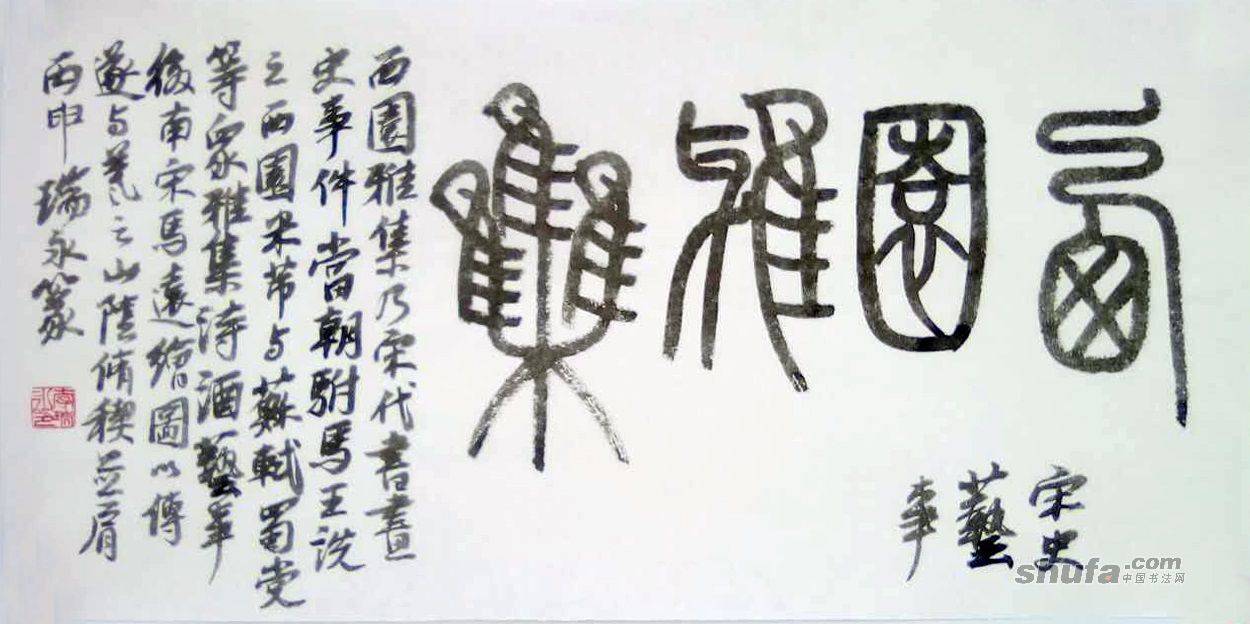 西園雅集
宋史
藝
事
西園雅集乃宋代書畫
史事件當朝駙馬王洗
之西園米芾与蘇軾蜀党
等眾雅集詩酒藝事
後南宋馬遠繪圖以傳
遂与羲之山陰脩稧並肩
丙申 瑞永篆
shufa.com
中国书法网